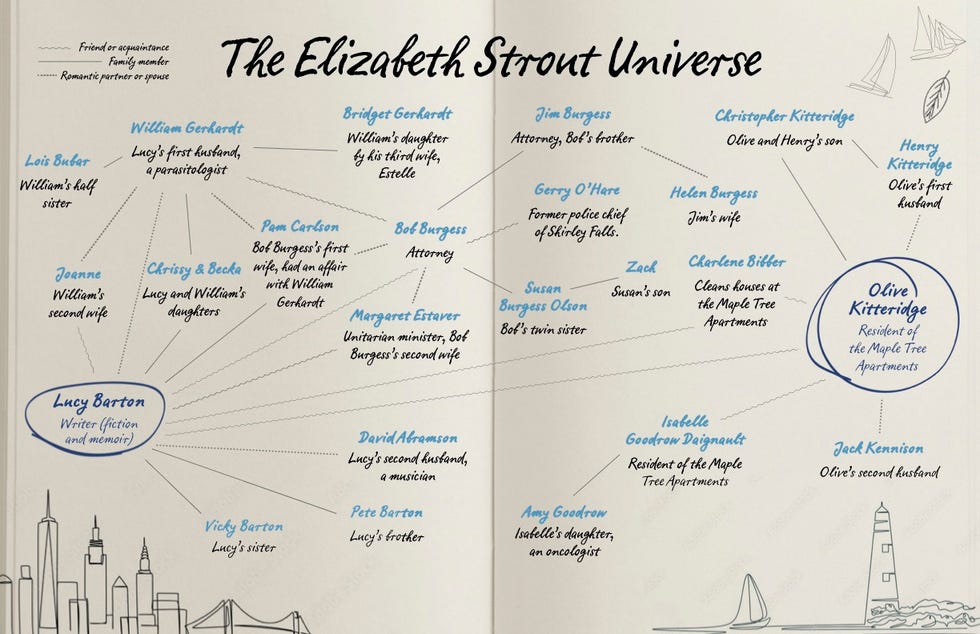 The Elizabeth Strout Universe
Friend or acquaintance
Family member
Romantic partner or spouse
William Gerhardt
Lucy's first husband,
a parasitologist
Bridget Gerhardt
William's daughter
by his third wife,
Estelle
Lois Bubar
William's half
sister
Pam Carlson
Bob Burgess's first
wife, had an affair
with William
Gerhardt
Bob Burgess
Attorney
Joanne
William's
second wife
Chrissy & Becka
Lucy and William's
daughters
Margaret Estaver
Unitarian minister, Bob
Burgess's second wife
Lucy Barton
Writer (fiction
and memoir)
David Abramson
Lucy's second husband,
a musician
Vicky Barton
Lucy's sister
Pete Barton
Lucy's brother
Jim Burgess
Attorney, Bob's brother
Christopher Kitteridge
Olive and Henry's son
Henry
Kitteridge
Olive's first
husband
Gerry O'Hare
Former police chief
of Shirley Falls.
Helen Burgess
Jim's wife
Zach
Susan's son
Susan
Burgess Olson
Bob's twin sister
Charlene Bibber
Cleans houses at
the Maple Tree
Apartments
Olive
Kitteridge
Resident of
the Maple Tree
Apartments
Isabelle
Goodrow Daignault
Resident of the Maple
Tree Apartments
Jack Kennison
Olive's second husband
Amy Goodrow
Isabelle's daughter,
an oncologist